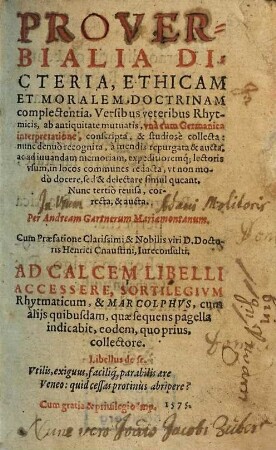 PROVER-
BIALIA DI-
CTERIA, ETHICAM
ET MORALEM DOCTRINAM
complectentia. Versibus veteribus Rhyt-
micis, ab antiquitate mutuatis, vnà cum Germanica
interpretatione, conscripta, & studiosè collecta:
nunc denuò recognita, à mendis repurgata & aucta,
ac ad iuuandam memoriam, expeditioremq; lectoris
vsum, in locos communes redacta, vt non mo-
dò docere, sed & delectare simul queant.
Nunc tertiò reuisa, cor-
recta, & aucta.
Per Andream Gartnerum Mariæmontanum.
Cum Præfatione Clarissimi & Nobilis viri D. Docto-
ris Henrici Cnaustini, Iureconsulti.
AD CALCEM LIBELLI
ACCESSERE, SORTILEGIVM
Rhytmaticum, & MARCOLPHVS, cum
alijs quibusdam, quæ sequens pagella
indicabit, eodem, quo prius,
collectore.
Libellus de se.
Vtilis, exiguus, faciliq; parabilis ære
Veneo: quid cessas protinus abripere?
Cum gratia & priuilegio Imp. 1575.
Nunc vero Joanis Jacobi